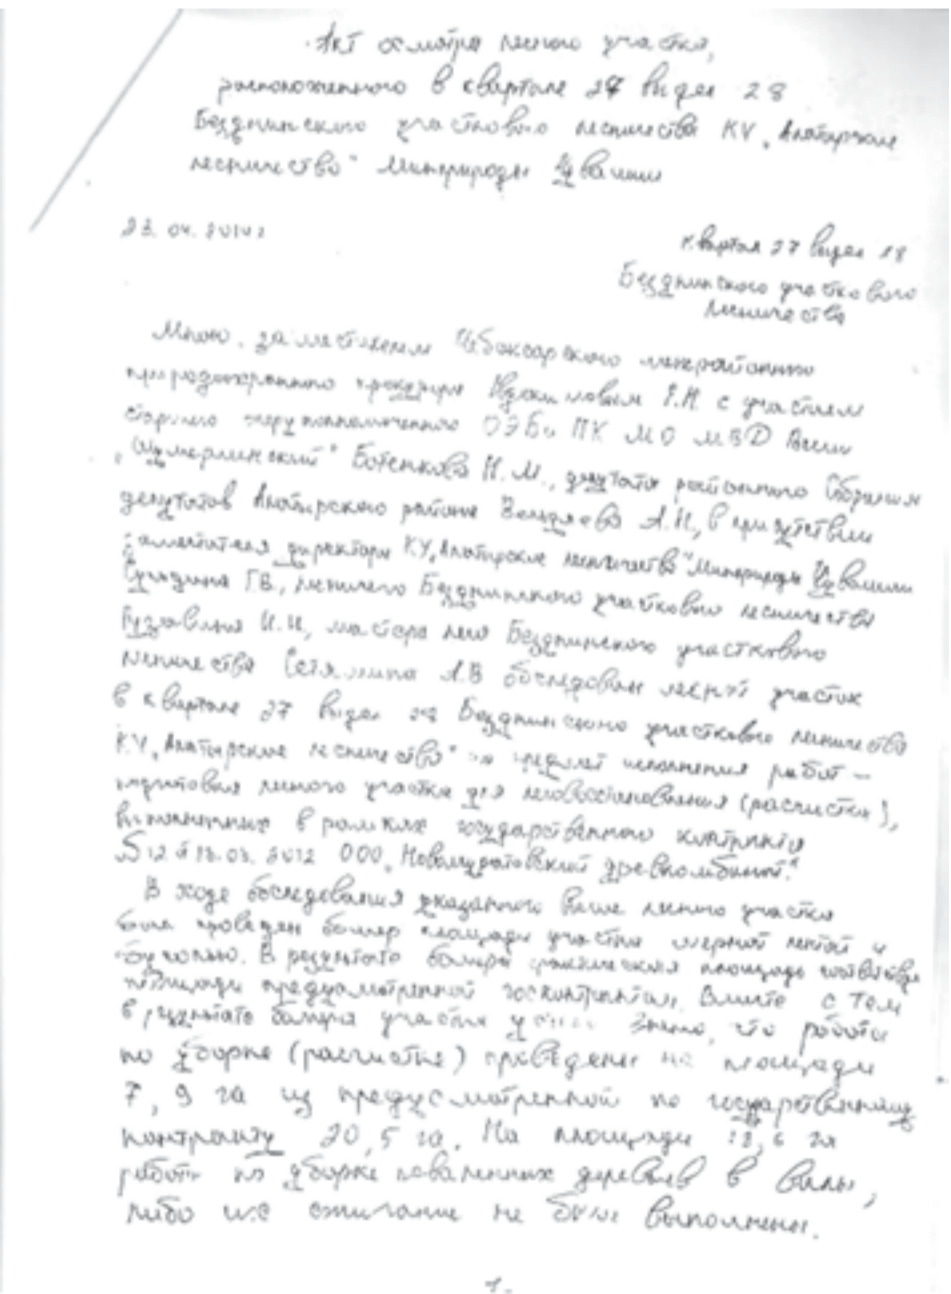 Акт осмотра лесного участка,
расположенного в квартале 27 выдел 28
Безднинского участкового лесничества КУ „Алатырское
лесничество" Минприроды Чувашии
23. 04.
квартал 27 выдел 28
Безднинского участкового
лесничества
Мною, заместителем Чебоксарского межрайонного
природоохранного прокурора Е.Н. с участием
старшего оперуполномоченного ОЭБ и ПК МО МВД России
„Шумерлинский" Ботенкова Н.М., депутата районного Собрания
депутатов Алатырского района А.Н., в присутствии
заместителя директора КУ „Алатырское лесничество" Минприроды Чувашии
Г.В., лесничего Безднинского участкового лесничества
И.И., мастера леса Безднинского участкового
лесничества А.В обследован лесной участок
в квартале 27 выдел 28 Безднинского участкового лесничества
КУ „Алатырское лесничество" на предмет исполнения работ –
подготовки лесного участка для лесовосстановления (расчистки),
выполненных в рамках государственного контракта
12 от 13.03. 2012 ООО „Новомуратовский древкомбинат."
В ходе обследования указанного выше лесного участка
был проведен замер площади участка мерной лентой и
буссолью. В результате замера фактическая площадь соответствует
площади предусмотренной госконтрактом. Вместе с тем
в результате замера участка установлено, что работы
по уборке (расчистке) проведены на площади
7, 9 га из предусмотренной по государственному
контракту 20,5 га. На площади 12,6 га
работы по уборке поваленных деревьев в валы,
либо их сжигание не были выполнены.
1.